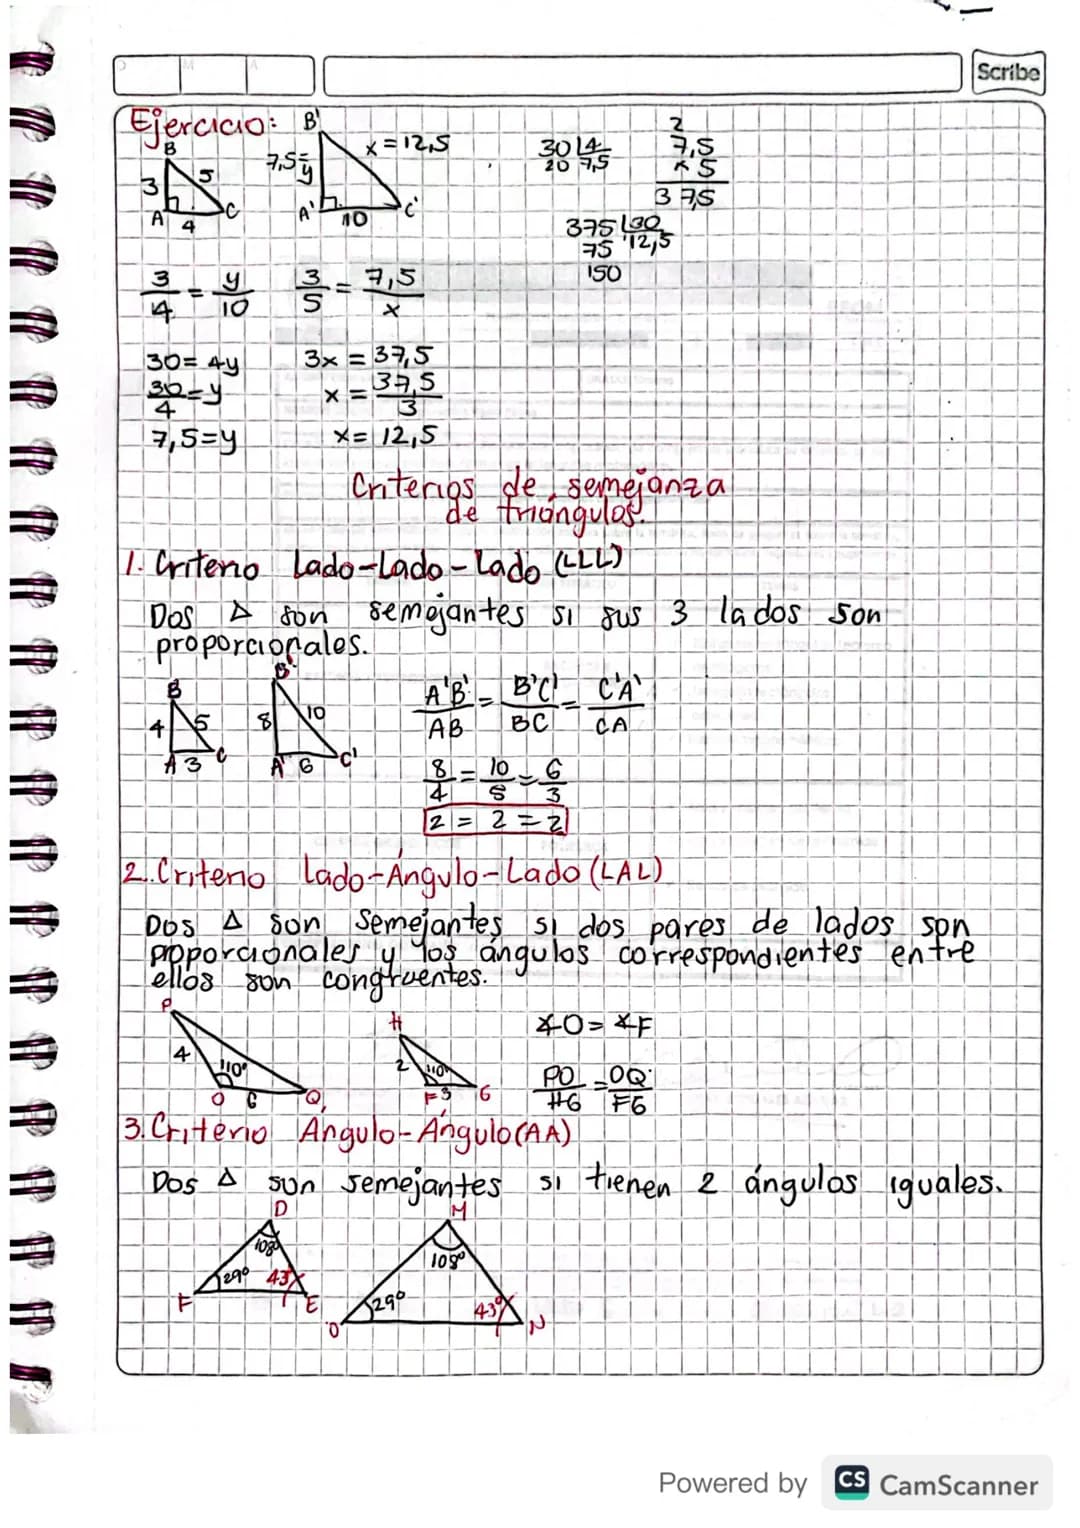 Scribe
Ejercicio:
B
3
5
A
4
C
B'
7,5=y
x = 12,5
A'
10
C'
30 | 4
20 7,5
2
7,5
x 5
37,5
375 | 30
75 12,5
150
3/4 = y/10
3/5 = 7,5/x
30 = 4y
3x = 37,5
30/4 = y
x = 37,5/3
7,5 = y
x = 12,5
Criterios de semejanza
de triángulos.
1. Criterio Lado-Lado-Lado (LLL)
Dos Δ son semejantes si sus 3 lados son
proporcionales.
B
4
5
A 3 C
B'
8
10
A' 6 C'
A'B'/AB = B'C'/BC = C'A'/CA
8/4 = 10/5 = 6/3
2 = 2 = 2
2. Criterio Lado-Ángulo-Lado (LAL)
Dos Δ son semejantes si dos pares de lados son
proporcionales y los ángulos correspondientes entre
ellos son congruentes.
P
4
110°
O 6 Q
H
2
110°
F 3 G
∡O = ∡F
PO/HG = OQ/FG
3. Criterio Ángulo-Ángulo (AA)
Dos Δ son semejantes si tienen 2 ángulos iguales.
D
108°
29° 43°
F E
M
108°
29° 43°
O N
Powered by CS CamScanner